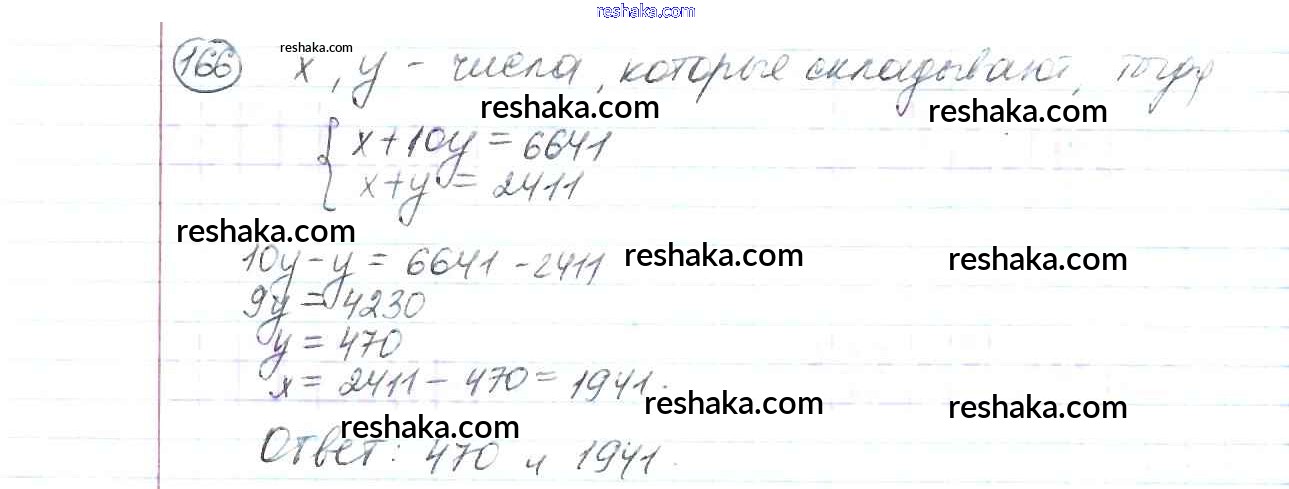 reshaka.com
166 x, y - числа, которые складывают, тогда
reshaka.com
reshaka.com
reshaka.com
x + 10y = 6641
x + y = 2411
reshaka.com
10y - y = 6641 - 2411
reshaka.com
reshaka.com
9y = 4230
y = 470
x = 2411 - 470 = 1941.
reshaka.com
reshaka.com
reshaka.com
Ответ: 470 и 1941.